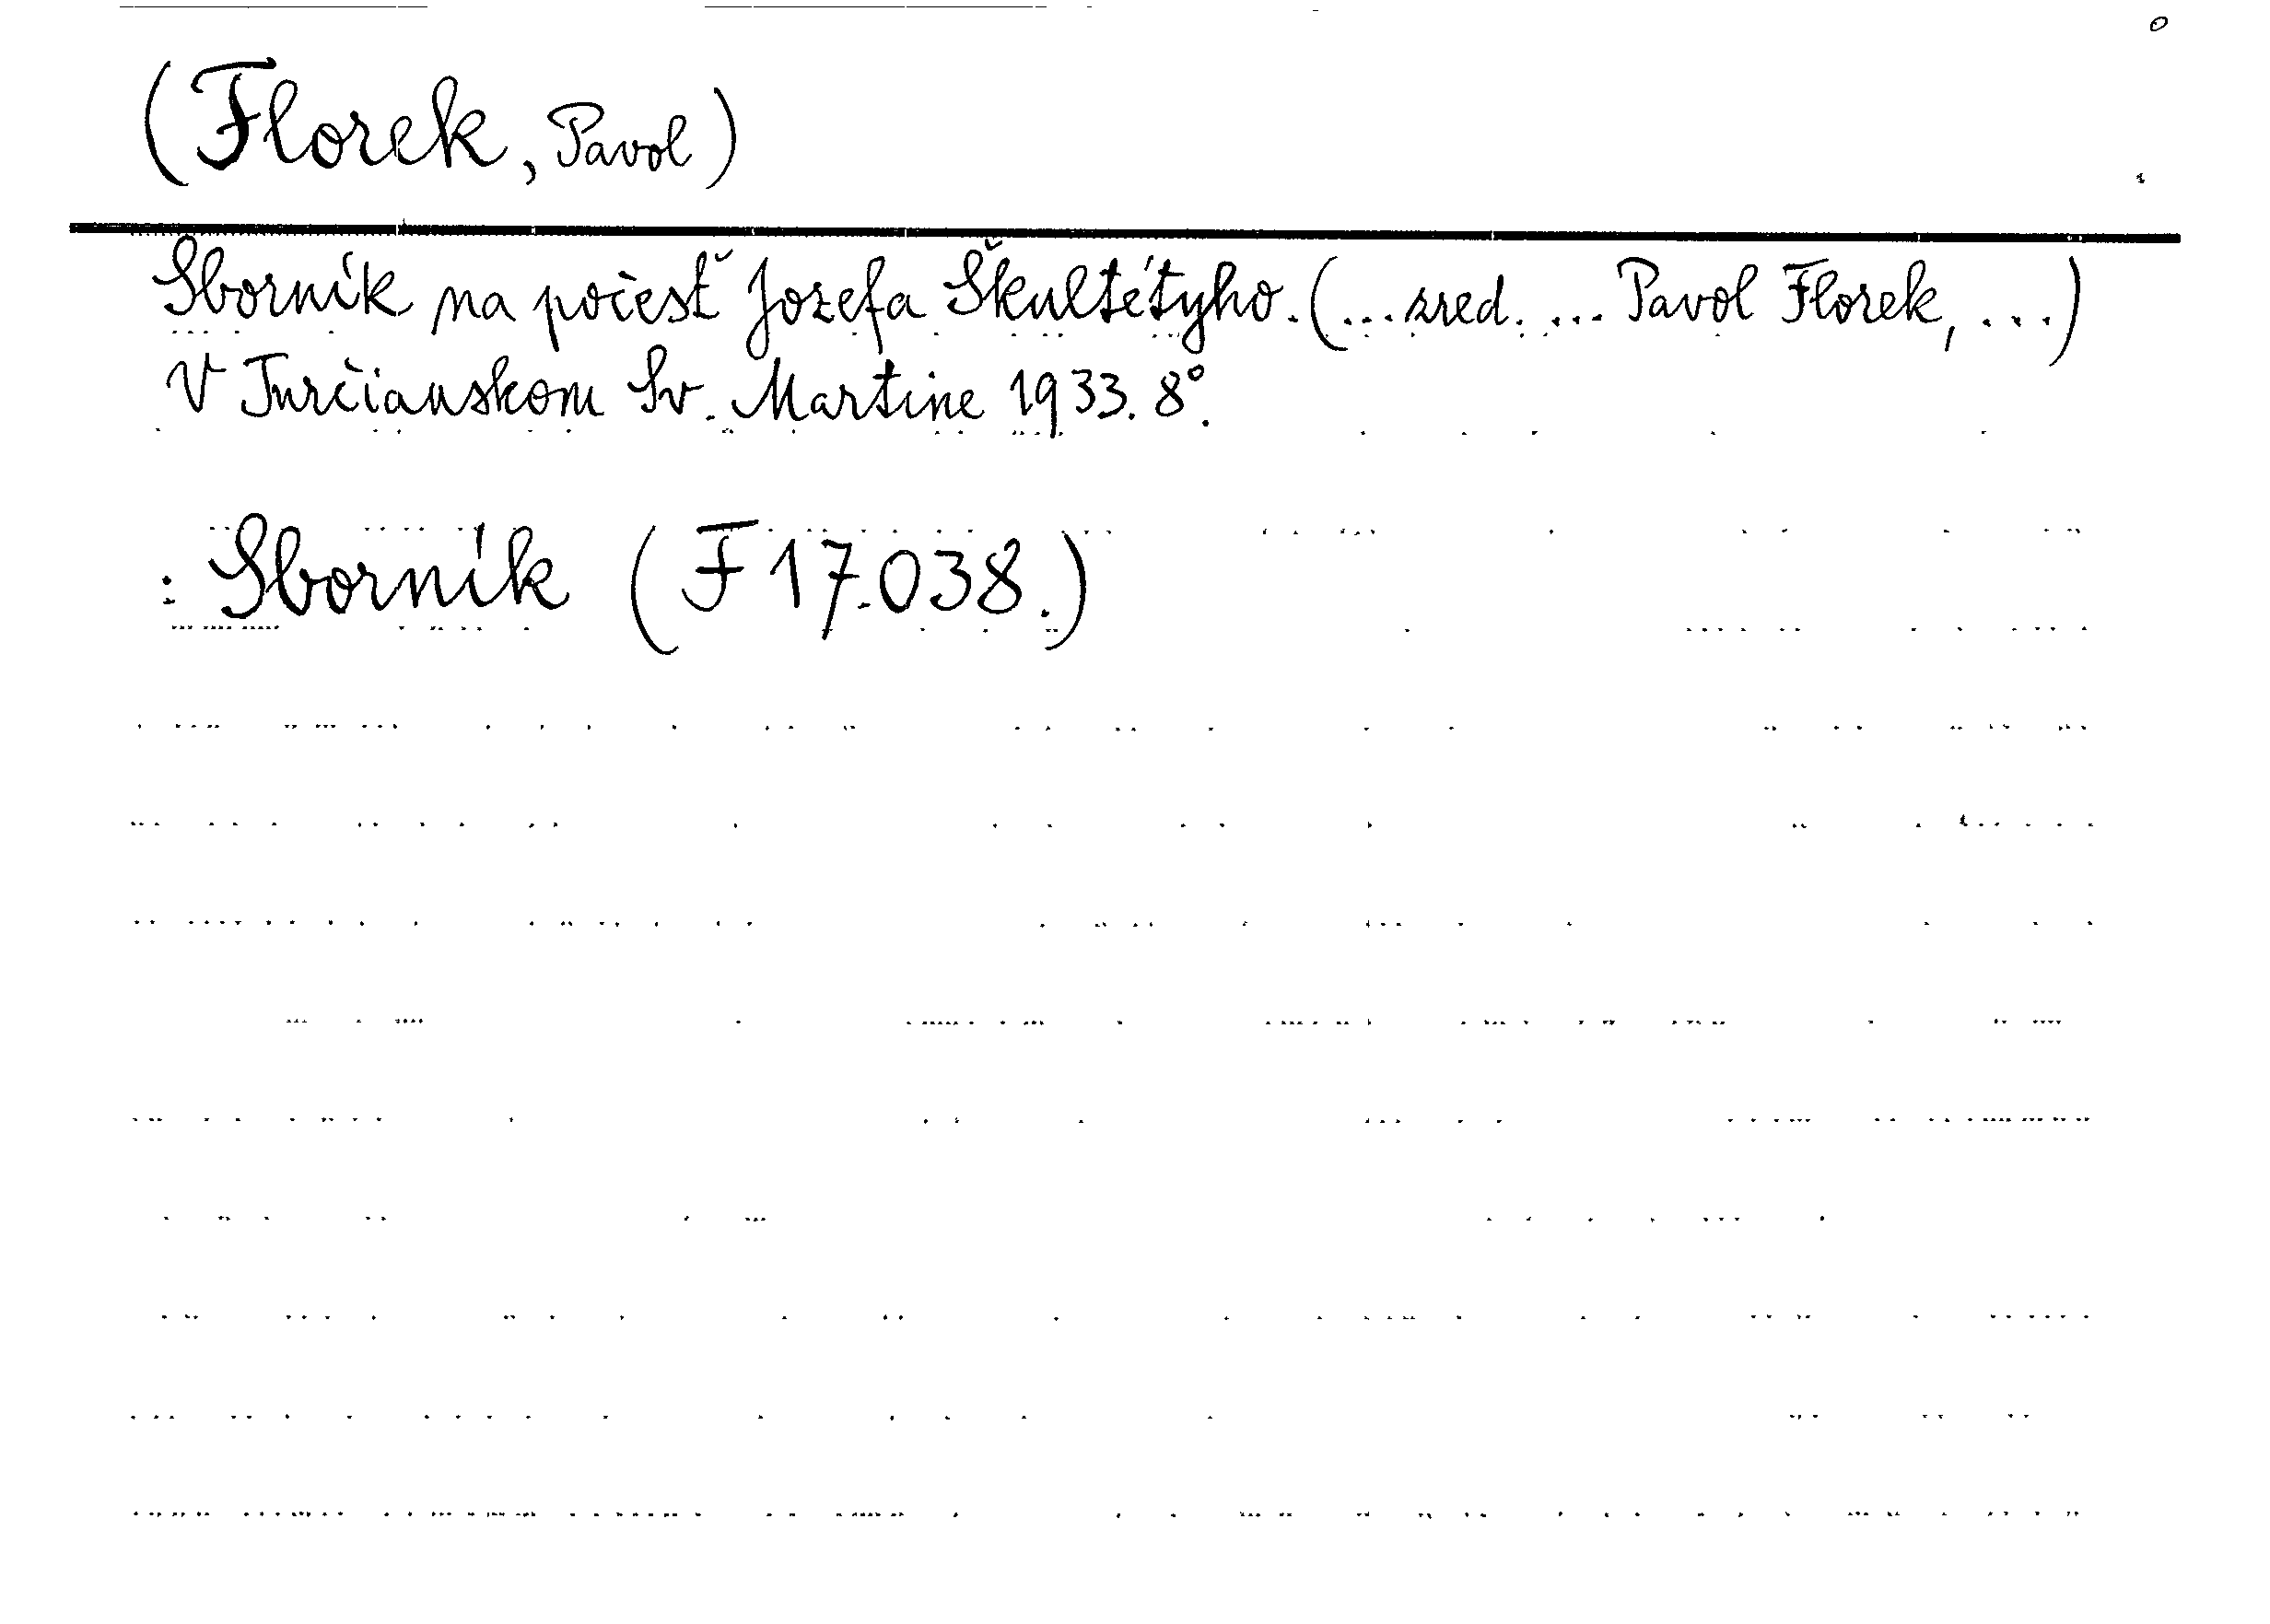 (Florek, Pavol)
Sborník na počesť Jozefa Škultétyho. (... zred. ... Pavol Florek, ...)
V Turčianskom Sv. Martine 1933. 8°.
: Sborník (F 17.038.)